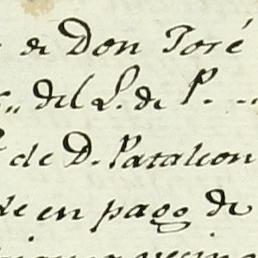 de Don José
del L. de P.
de D. Pataleon
de en pago de